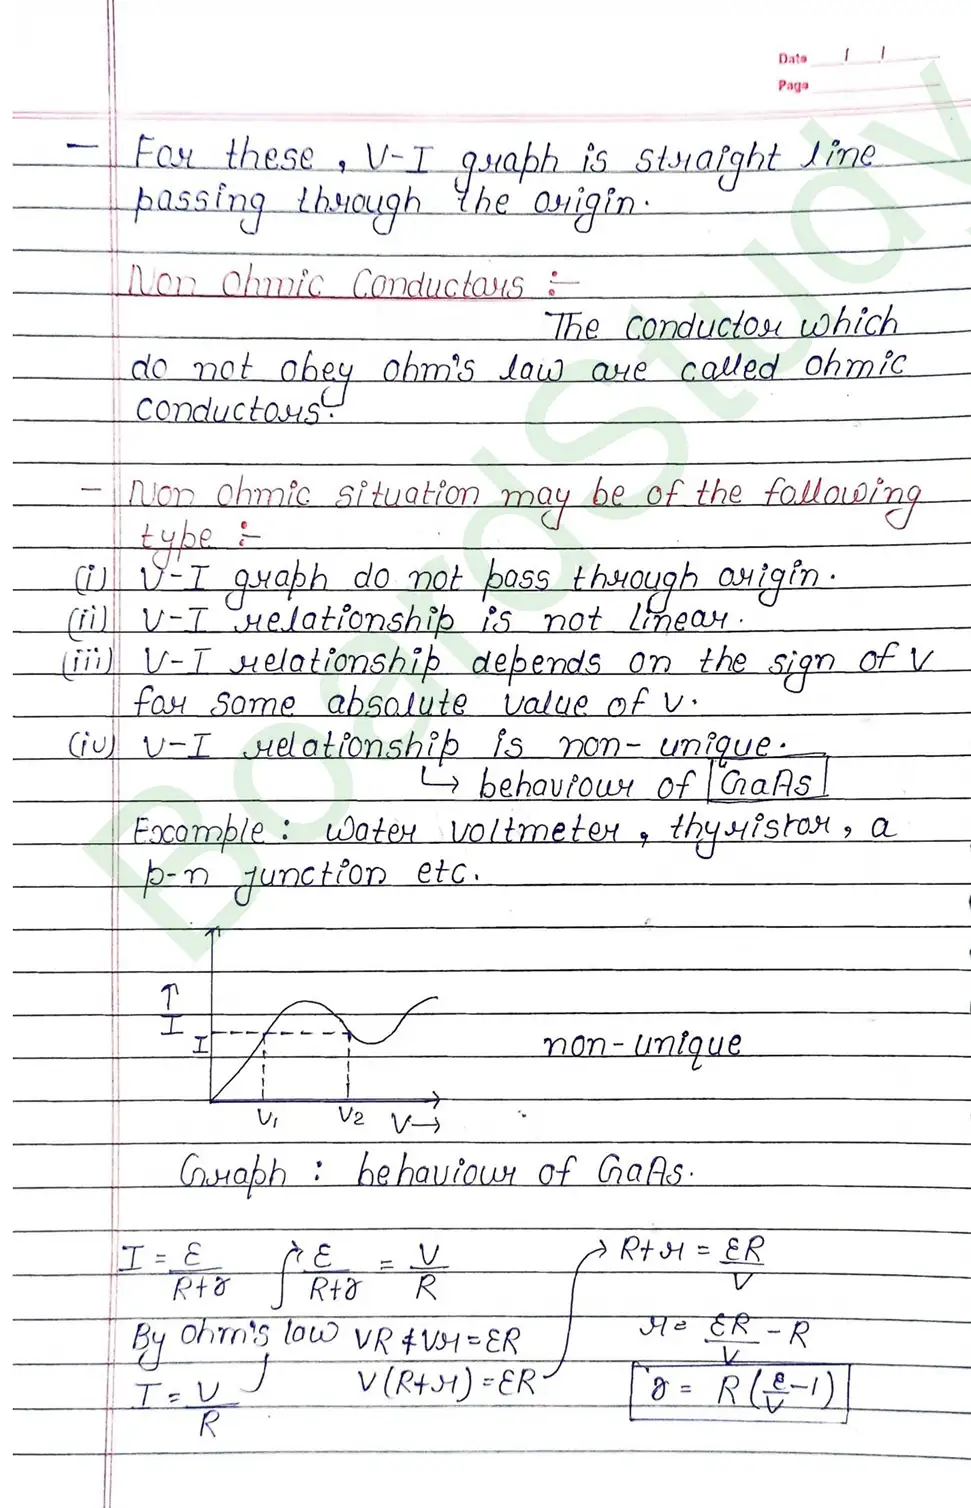 Date / /
Page
– For these, V-I graph is straight line
passing through the origin.
Non Ohmic Conductors :-
The conductor which
do not obey ohm's law are called ohmic
conductors.
– Non ohmic situation may be of the following
type :-
(i) V-I graph do not pass through origin.
(ii) V-I relationship is not linear.
(iii) V-I relationship depends on the sign of V
for some absolute value of V.
(iv) V-I relationship is non-unique.
↳ behaviour of GaAs
Example: water voltmeter, thyristor, a
p-n junction etc.
↑
I
I
non-unique
V₁ V₂ V→
Graph : behaviour of GaAs.
I = ε/(R+r) ε/(R+r) = V/R → R+r = εR/V
By ohm's law VR + Vr = εR r = εR/V - R
I = V/R V(R+r) = εR r = R(ε/V - 1)
BoardStudy